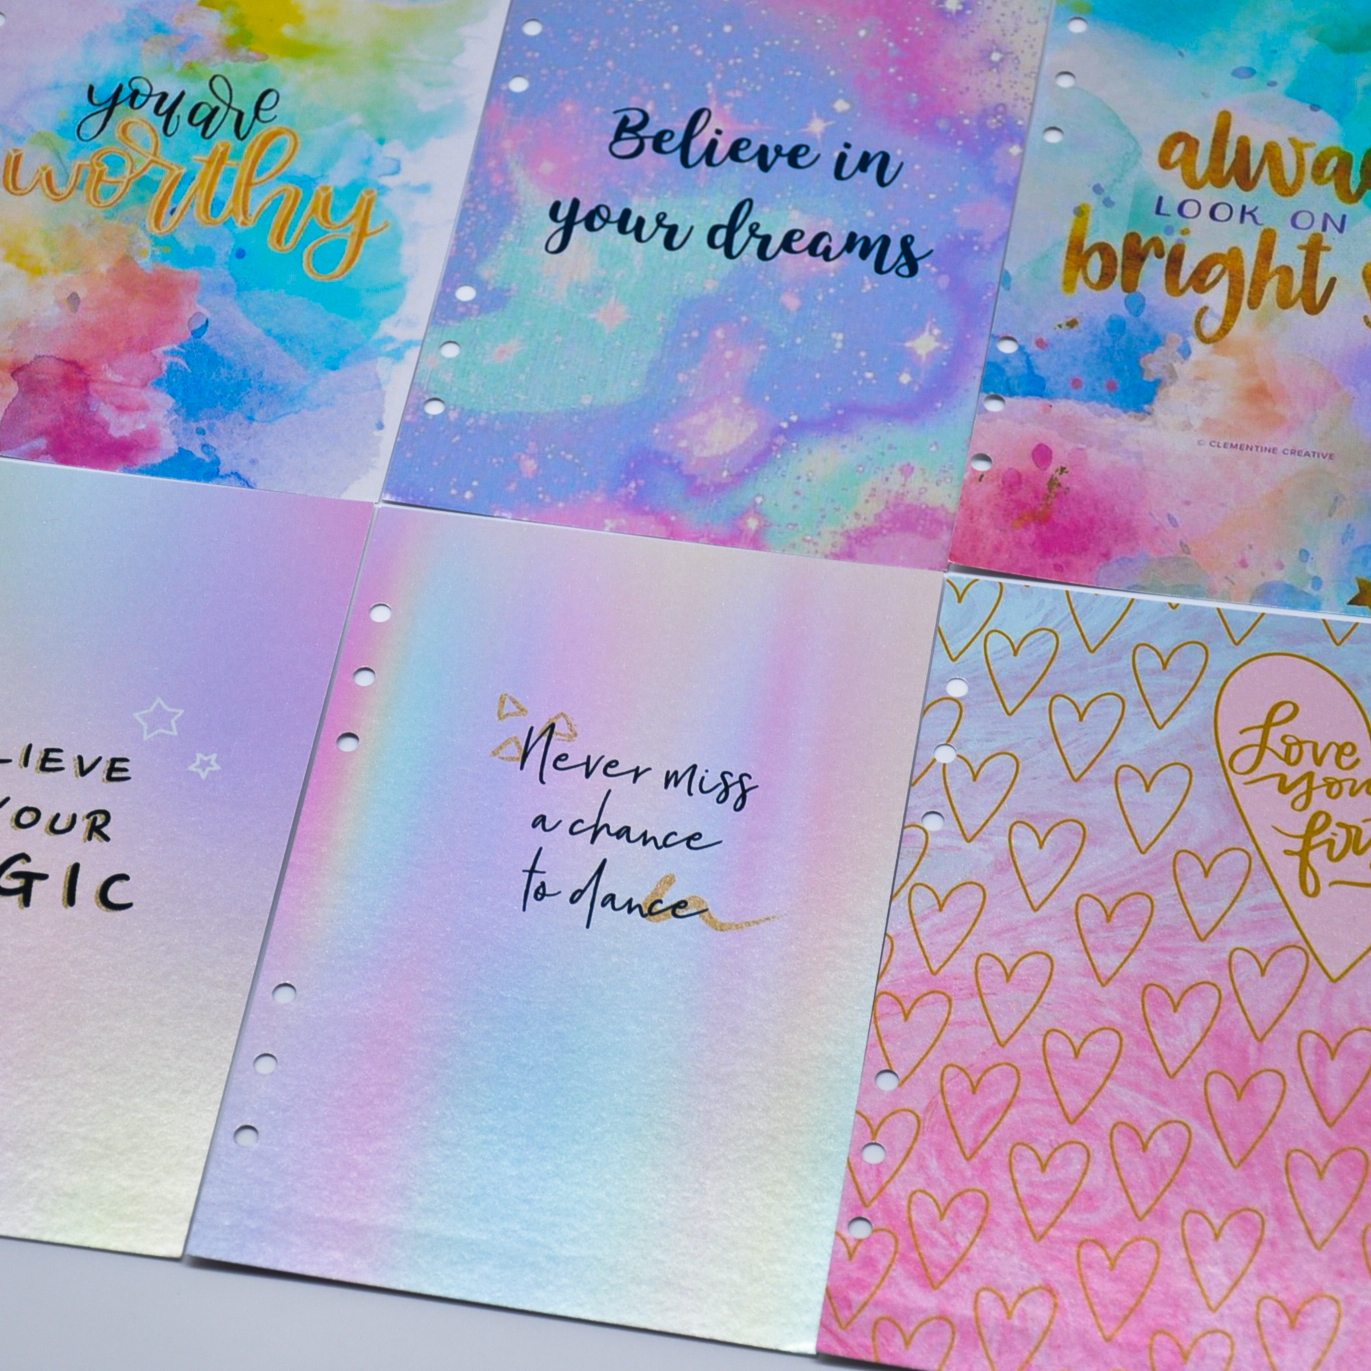 you are
worthy
Believe in
your dreams
LOOK ON
bright
© CLEMENTINE CREATIVE
Never miss
a chance
to dance
Love